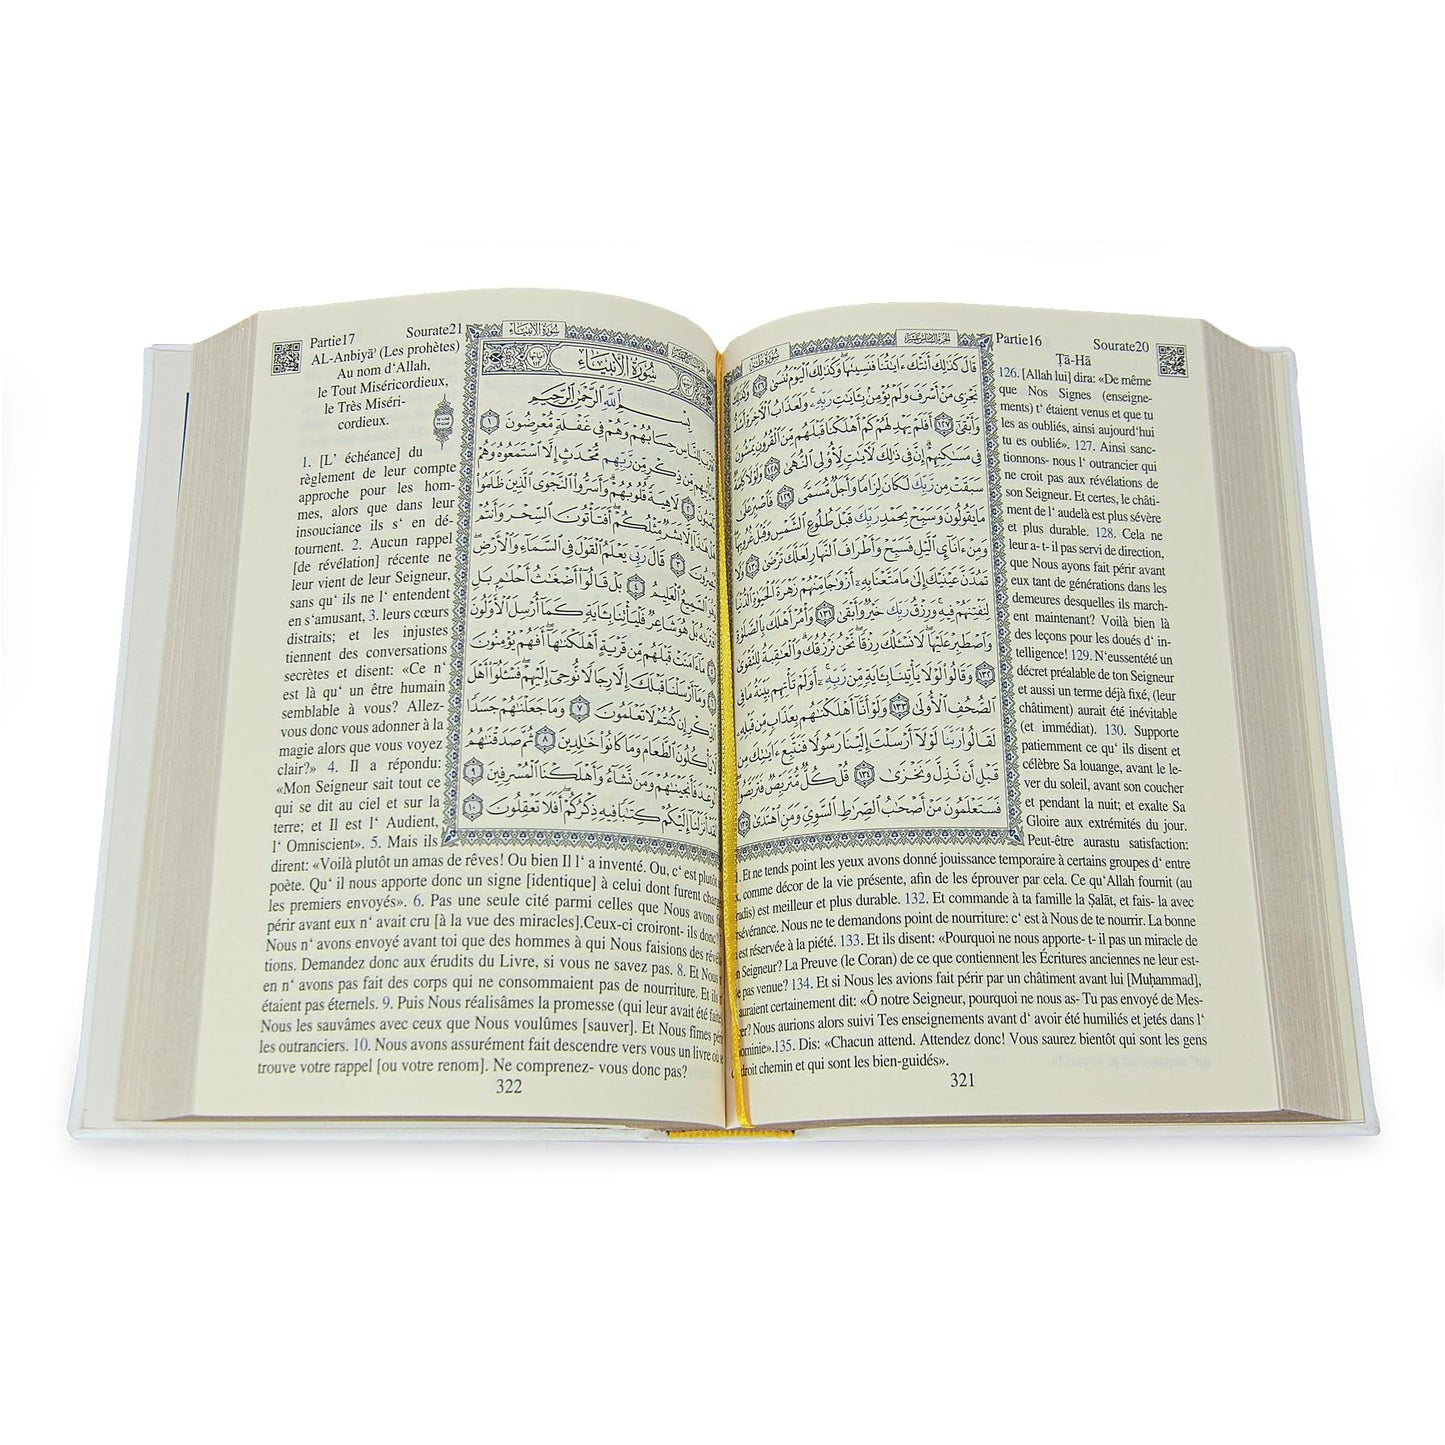 Partie16 Sourate20
Ṭa-Hā
الجزء السادس عشر سورة طه
قَالَ كَذَٰلِكَ أَتَتْكَ ءَايَٰتُنَا فَنَسِيتَهَا وَكَذَٰلِكَ ٱلْيَوْمَ تُنسَىٰ ١٢٦ وَكَذَٰلِكَ
نَجْزِى مَنْ أَسْرَفَ وَلَمْ يُؤْمِنۢ بِـَٔايَٰتِ رَبِّهِۦ وَلَعَذَابُ ٱلْءَاخِرَةِ أَشَدُّ
وَأَبْقَىٰٓ ١٢٧ أَفَلَمْ يَهْدِ لَهُمْ كَمْ أَهْلَكْنَا قَبْلَهُم مِّنَ ٱلْقُرُونِ يَمْشُونَ
فِى مَسَٰكِنِهِمْ إِنَّ فِى ذَٰلِكَ لَءَايَٰتٍ لِّأُو۟لِى ٱلنُّهَىٰ ١٢٨ وَلَوْلَا كَلِمَةٌ
سَبَقَتْ مِن رَّبِّكَ لَكَانَ لِزَامًا وَأَجَلٌ مُّسَمًّى ١٢٩ فَٱصْبِرْ عَلَىٰ
مَا يَقُولُونَ وَسَبِّحْ بِحَمْدِ رَبِّكَ قَبْلَ طُلُوعِ ٱلشَّمْسِ وَقَبْلَ غُرُوبِهَا
وَمِنْ ءَانَآئِ ٱلَّيْلِ فَسَبِّحْ وَأَطْرَافَ ٱلنَّهَارِ لَعَلَّكَ تَرْضَىٰ ١٣٠ وَلَا
تَمُدَّنَّ عَيْنَيْكَ إِلَىٰ مَا مَتَّعْنَا بِهِۦٓ أَزْوَٰجًا مِّنْهُمْ زَهْرَةَ ٱلْحَيَوٰةِ ٱلدُّنْيَا
لِنَفْتِنَهُمْ فِيهِ وَرِزْقُ رَبِّكَ خَيْرٌ وَأَبْقَىٰ ١٣١ وَأْمُرْ أَهْلَكَ بِٱلصَّلَوٰةِ
وَٱصْطَبِرْ عَلَيْهَا لَا نَسْـَٔلُكَ رِزْقًا نَّحْنُ نَرْزُقُكَ وَٱلْعَٰقِبَةُ لِلتَّقْوَىٰ
١٣٢ وَقَالُوا۟ لَوْلَا يَأْتِينَا بِـَٔايَةٍ مِّن رَّبِّهِۦٓ أَوَلَمْ تَأْتِهِم بَيِّنَةُ مَا فِى
ٱلصُّحُفِ ٱلْأُولَىٰ ١٣٣ وَلَوْ أَنَّآ أَهْلَكْنَٰهُم بِعَذَابٍ مِّن قَبْلِهِۦ
لَقَالُوا۟ رَبَّنَا لَوْلَآ أَرْسَلْتَ إِلَيْنَا رَسُولًا فَنَتَّبِعَ ءَايَٰتِكَ مِن
قَبْلِ أَن نَّذِلَّ وَنَخْزَىٰ ١٣٤ قُلْ كُلٌّ مُّتَرَبِّصٌ فَتَرَبَّصُوا۟
فَسَتَعْلَمُونَ مَنْ أَصْحَٰبُ ٱلصِّرَٰطِ ٱلسَّوِىِّ وَمَنِ ٱهْتَدَىٰ ١٣٥
126. [Allah lui] dira: «De même
que Nos Signes (enseigne-
ments) t‘ étaient venus et que tu
les as oubliés, ainsi aujourd'hui
tu es oublié». 127. Ainsi sanc-
tionnons- nous l‘ outrancier qui
ne croit pas aux révélations de
son Seigneur. Et certes, le châti-
ment de l‘ audelà est plus sévère
et plus durable. 128. Cela ne
leur a- t- il pas servi de direction,
que Nous ayons fait périr avant
eux tant de générations dans les
demeures desquelles ils march-
ent maintenant? Voilà bien là
des leçons pour les doués d‘ in-
telligence! 129. N‘eussentété un
décret préalable de ton Seigneur
et aussi un terme déjà fixé, (leur
châtiment) aurait été inévitable
(et immédiat). 130. Supporte
patiemment ce qu‘ ils disent et
célèbre Sa louange, avant le le-
ver du soleil, avant son coucher
et pendant la nuit; et exalte Sa
Gloire aux extrémités du jour.
Peut-être aurastu satisfaction:
Et ne tends point les yeux avons donné jouissance temporaire à certains groupes d‘ entre
comme décor de la vie présente, afin de les éprouver par cela. Ce qu‘Allah fournit (au
est meilleur et plus durable. 132. Et commande à ta famille la Ṣalāt, et fais- la avec
Nous ne te demandons point de nourriture: c‘ est à Nous de te nourrir. La bonne
est réservée à la piété. 133. Et ils disent: «Pourquoi ne nous apporte- t- il pas un miracle de
Seigneur? La Preuve (le Coran) de ce que contiennent les Écritures anciennes ne leur est-
pas venue? 134. Et si Nous les avions fait périr par un châtiment avant lui [Muḥammad],
auraient certainement dit: «Ô notre Seigneur, pourquoi ne nous as- Tu pas envoyé de Mes-
Nous aurions alors suivi Tes enseignements avant d‘ avoir été humiliés et jetés dans l‘
135. Dis: «Chacun attend. Attendez donc! Vous saurez bientôt qui sont les gens
droit chemin et qui sont les bien-guidés».
321
Partie17 Sourate21
AL-Anbiyā' (Les prohètes)
Au nom d‘Allah,
le Tout Miséricordieux,
le Très Miséri-
cordieux.
سورة الأنبياء
سُورَةُ الأَنبيَاءِ
بِسْمِ ٱللَّهِ ٱلرَّحْمَٰنِ ٱلرَّحِيمِ
لِلنَّاسِ حِسَابُهُمْ وَهُمْ فِى غَفْلَةٍ مُّعْرِضُونَ ١
مِّن ذِكْرٍ مِّن رَّبِّهِم مُّحْدَثٍ إِلَّا ٱسْتَمَعُوهُ وَهُمْ
٢ لَاهِيَةً قُلُوبُهُمْ وَأَسَرُّوا۟ ٱلنَّجْوَى ٱلَّذِينَ ظَلَمُوا۟
هَٰذَآ إِلَّا بَشَرٌ مِّثْلُكُمْ أَفَتَأْتُونَ ٱلسِّحْرَ وَأَنتُمْ
٣ قَالَ رَبِّى يَعْلَمُ ٱلْقَوْلَ فِى ٱلسَّمَآءِ وَٱلْأَرْضِ
ٱلسَّمِيعُ ٱلْعَلِيمُ ٤ بَلْ قَالُوٓا۟ أَضْغَٰثُ أَحْلَٰمٍۭ بَلِ
بَلْ هُوَ شَاعِرٌ فَلْيَأْتِنَا بِـَٔايَةٍ كَمَآ أُرْسِلَ ٱلْأَوَّلُونَ
٥ مَآ ءَامَنَتْ قَبْلَهُم مِّن قَرْيَةٍ أَهْلَكْنَٰهَآ أَفَهُمْ يُؤْمِنُونَ
٦ وَمَآ أَرْسَلْنَا قَبْلَكَ إِلَّا رِجَالًا نُّوحِىٓ إِلَيْهِمْ فَسْـَٔلُوٓا۟ أَهْلَ
ٱلذِّكْرِ إِن كُنتُمْ لَا تَعْلَمُونَ ٧ وَمَا جَعَلْنَٰهُمْ جَسَدًا
لَّا يَأْكُلُونَ ٱلطَّعَامَ وَمَا كَانُوا۟ خَٰلِدِينَ ٨ ثُمَّ صَدَقْنَٰهُمُ
ٱلْوَعْدَ فَأَنجَيْنَٰهُمْ وَمَن نَّشَآءُ وَأَهْلَكْنَا ٱلْمُسْرِفِينَ ٩
لَقَدْ أَنزَلْنَآ إِلَيْكُمْ كِتَٰبًا فِيهِ ذِكْرُكُمْ أَفَلَا تَعْقِلُونَ ١٠
1. [L‘ échéance] du
règlement de leur compte
approche pour les hom-
mes, alors que dans leur
insouciance ils s‘ en dé-
tournent. 2. Aucun rappel
[de révélation] récente ne
leur vient de leur Seigneur,
sans qu‘ ils ne l‘ entendent
en s‘amusant, 3. leurs cœurs
distraits; et les injustes
tiennent des conversations
secrètes et disent: «Ce n‘
est là qu‘ un être humain
semblable à vous? Allez-
vous donc vous adonner à la
magie alors que vous voyez
clair?» 4. Il a répondu:
«Mon Seigneur sait tout ce
qui se dit au ciel et sur la
terre; et Il est l‘ Audient,
l‘ Omniscient». 5. Mais ils
dirent: «Voilà plutôt un amas de rêves! Ou bien Il l‘ a inventé. Ou, c‘ est plutôt
poète. Qu‘ il nous apporte donc un signe [identique] à celui dont furent
les premiers envoyés». 6. Pas une seule cité parmi celles que Nous avons
périr avant eux n‘ avait cru [à la vue des miracles].Ceux-ci croiront- ils donc?
Nous n‘ avons envoyé avant toi que des hommes à qui Nous faisions des
tions. Demandez donc aux érudits du Livre, si vous ne savez pas. 8. Et Nous
en n‘ avons pas fait des corps qui ne consommaient pas de nourriture. Et ils
étaient pas éternels. 9. Puis Nous réalisâmes la promesse (qui leur avait été
Nous les sauvâmes avec ceux que Nous voulûmes [sauver]. Et Nous fîmes
les outranciers. 10. Nous avons assurément fait descendre vers vous un livre où
trouve votre rappel [ou votre renom]. Ne comprenez- vous donc pas?
322